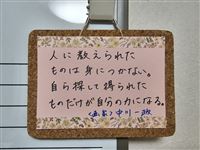 人に教えられた
ものは身につかない。
自ら探して得られた
ものだけが自分の力になる。
(画家)中川一政